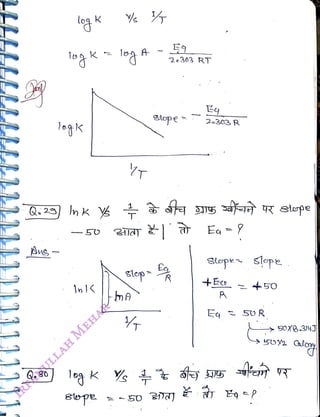 log K V/s 1/T
log K = log A - Ea / 2.303 RT
log K
slope = - Ea / 2.303 R
1/T
Q.29) ln K V/s 1/T के बीच ग्राफ खींचने पर slope
-50 आता है | तो Ea = ?
Ans -
ln K
slop = Ea/R
lnA
1/T
slope = slope
+Ea/R = +50
Ea = 50R
→ 50×8.314J
→ 50×2 Calory
MEHAR
Q.30) log K V/s 1/T के बीच ग्राफ खींचने पर
slope = -50 आता है तो Ea = ?